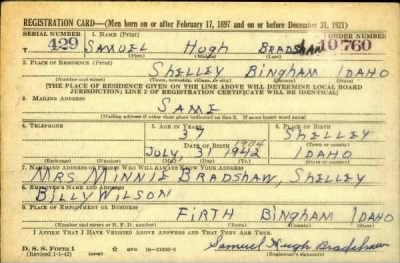 REGISTRATION CARD—(Men born on or after February 17, 1897 and on or before December 31, 1921)
SERIAL NUMBER 1. NAME (Print) ORDER NUMBER
T 429 SAMUEL HUGH BRADSHAW 10760
(First) (Middle) (Last)
2. PLACE OF RESIDENCE (Print)
SHELLEY BINGHAM IDAHO
(Number and street) (Town, township, village, or city) (County) (State)
[THE PLACE OF RESIDENCE GIVEN ON THE LINE ABOVE WILL DETERMINE LOCAL BOARD
JURISDICTION; LINE 2 OF REGISTRATION CERTIFICATE WILL BE IDENTICAL]
3. MAILING ADDRESS
SAME
[Mailing address if other than place indicated on line 2. If same insert word same]
4. TELEPHONE 5. AGE IN YEARS 6. PLACE OF BIRTH
37 SHELLEY
DATE OF BIRTH (Town or county)
1904
JULY 31 1942 IDAHO
(Exchange) (Number) (Mo.) (Day) (Yr.) (State or country)
7. NAME AND ADDRESS OF PERSON WHO WILL ALWAYS KNOW YOUR ADDRESS
MRS MINNIE BRADSHAW, SHELLEY
8. EMPLOYER'S NAME AND ADDRESS
BILLY WILSON
9. PLACE OF EMPLOYMENT OR BUSINESS
FIRTH BINGHAM IDAHO
(Number and street or R. F. D. number) (Town) (County) (State)
I AFFIRM THAT I HAVE VERIFIED ABOVE ANSWERS AND THAT THEY ARE TRUE.
D. S. S. Form 1 GPO 16—21630-2 Samuel Hugh Bradshaw
(Revised 1-1-42) (over) (Registrant's signature)